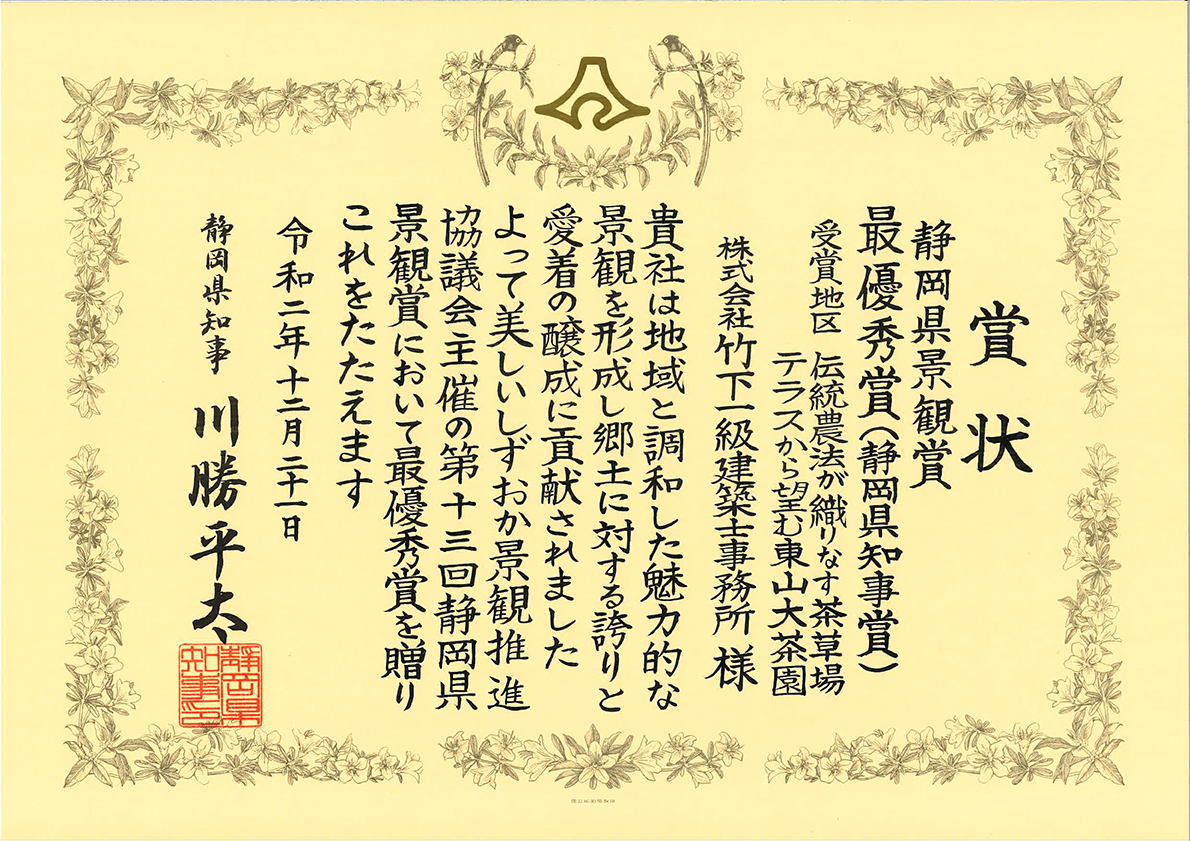 賞状
静岡県景観賞
最優秀賞(静岡県知事賞)
受賞地区 伝統農法が織りなす茶草場
テラスから望む東山大茶園
株式会社竹下一級建築士事務所 様
貴社は地域と調和した魅力的な
景観を形成し郷土に対する誇りと
愛着の醸成に貢献されました
よって美しいしずおか景観推進
協議会主催の第十三回静岡県
景観賞において最優秀賞を贈り
これをたたえます
令和二年十二月二十一日
静岡県知事 川勝平太
静岡県
知事之印